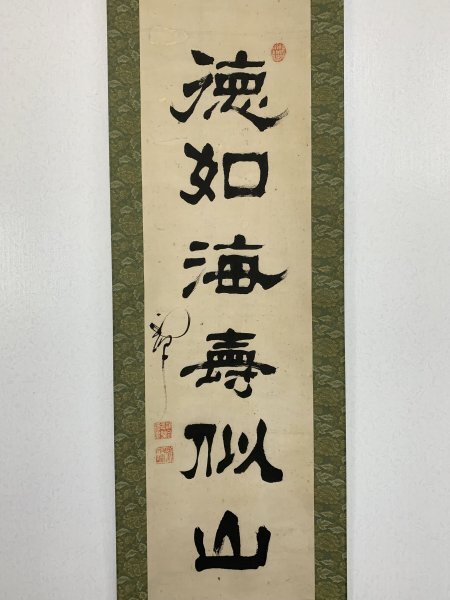 徳如海壽似山